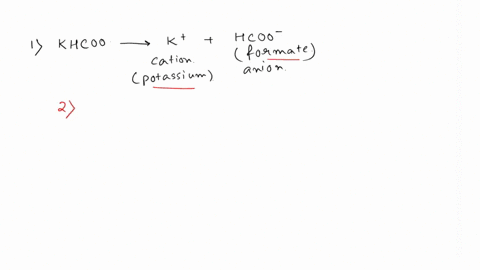 1) KHCOO ⟶ K⁺ + HCOO⁻
cation (formate)
(potassium) anion.
2)